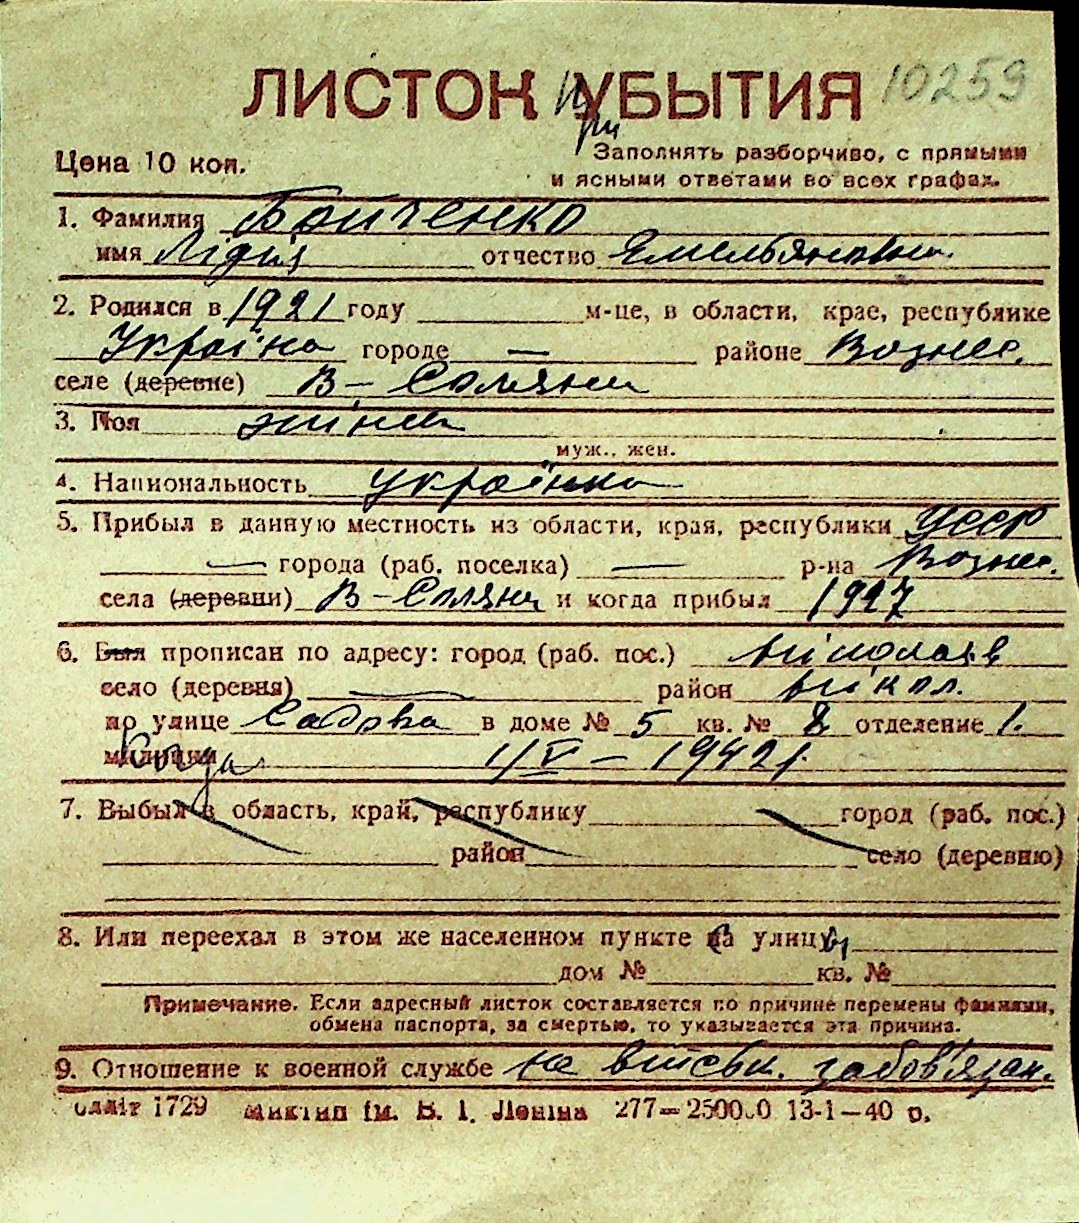 ЛИСТОК УБЫТИЯ 10259
при
Цена 10 коп.
Заполнять разборчиво, с прямыми
и ясными ответами во всех графах.
1. Фамилия Бойченко
имя Лідія отчество Емельяновна
2. Родился в 1921 году м-це, в области, крае, республике
Україна городе — районе Вознес.
селе (деревне) В-Соляни
3. Пол жінка
муж., жен.
4. Национальность українка
5. Прибыл в данную местность из области, края, республики УССР
— города (раб. поселка) — р-на Вознес.
села (деревни) В-Соляни и когда прибыл 1927
6. Был прописан по адресу: город (раб. пос.) Міколаєв
село (деревня) — район Мікол.
по улице Садова в доме № 5 кв. № 8 отделение 1.
милиции Когда 1/V – 1942 г.
7. Выбыл в область, край, республику город (раб. пос.)
район село (деревню)
8. Или переехал в этом же населенном пункте на улицу
дом № кв. №
Примечание. Если адресный листок составляется по причине перемены фамилии,
обмена паспорта, за смертью, то указывается эта причина.
9. Отношение к военной службе не військ. забов'язан.
1729 ім. В. І. Леніна 277— 13-1—40 р.